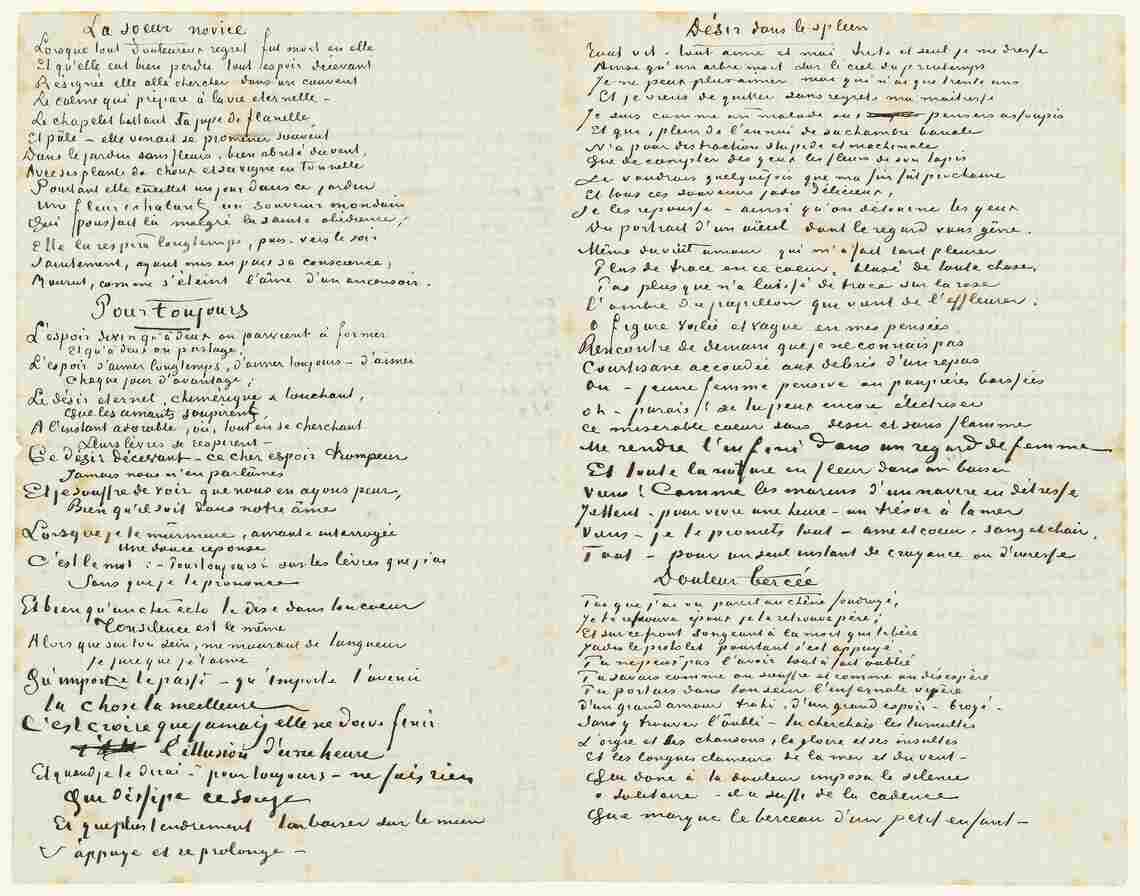 La soeur novice
Lorsque tout douteureux regret fut mort en elle
Et qu'elle eut bien perdu tout espoir decevant
Résignée elle alla chercher dans un couvent
Le calme qui prepare à la vie eternelle -
Le chapelet battant sa jupe de flanelle,
Et pâle - elle venait se promener souvent
Dans le jardin sans fleurs, bien abrité du vent,
Avec ses plants de choux et sa vigne en tonnelle
Pourtant elle cueillit un jour dans ce jardin
Une fleur exhalant un souvenir mondain
Qui poussait là malgré la sainte obédience,
Elle la respira longtemps, puis - vers le soir
Saintement, ayant mis en paix sa conscience,
Mourut, comme s'éteint l'âme d'un encensoir.
Pour toujours
L'espoir divin qu'à deux on parvient à former
Et qu'à deux on partage,
L'espoir d'aimer longtemps, d'aimer toujours - d'aimer
Chaque jour d'avantage;
Le désir eternel, chimérique et touchant,
Que les amants soupirent,
A l'instant adorable, où, tout en se cherchant
Leurs lèvres se respirent -
Ce désir décevant - ce cher espoir trompeur
Jamais nous n'en parlâmes
Et je souffre de voir que nous en ayons peur,
Bien qu'il soit dans notre âme
Lorsque je te murmure, amante interrogée
Une douce reponse
C'est le mot : - Pour toujours - sur les lèvres que j'ai
Sans que je le prononce
Et bien qu'un cher echo le dise dans ton coeur
Ton silence est le même
Alors que sur ton sein, me mourant de langueur
Je jure que je t'aime
Qu'importe le passé - qu'importe l'avenir
La chose la meilleure
C'est croire que jamais elle ne doive finir
l'illusion d'une heure
Et quand je te dirai - pour toujours - ne fais rien
Qui dissipe ce songe
Et que plus tendrement ton baiser sur le mien
S'appuye et se prolonge -
Désir dans le spleen
Tout vit - tout aime et moi triste et seul je me dresse
Ainsi qu'un arbre mort sur le ciel du printemps
Je ne peux plus aimer moi qui n'ai que trente ans
Et je viens de quitter sans regrets ma maitresse
Je suis comme un malade aux pensers assoupis
Et qui, plein de l'ennui de sa chambre banale
N'a pour distraction stupide et machinale
Que de compter des yeux les fleurs de son tapis
Je voudrais quelquefois que ma fin fut prochaine
Et tous ces souvenirs jadis délicieux,
Je les repousse - ainsi qu'on détourne les yeux
Du portrait d'un aieul dont le regard vous gêne.
Même du vieil amour qui m'a fait tant pleurer
Plus de trace en ce coeur, blasé de toute chose,
Pas plus que n'a laissé de trace sur la rose
L'ombre du papillon qui vient de l'effleurer.
O figure voilée et vague en mes pensées
Rencontre de demain que je ne connais pas
Courtisane accoudée aux débris d'un repas
Ou - jeune femme pensive au paupières baissées
Oh - parais! si tu peux encore électriser
Ce miserable coeur sans desir et sans flamme
Me rendre l'infini dans un regard de femme
Et toute la nature en fleur dans un baiser
Viens! Comme les marins d'un navire en détresse
Jettent - pour vivre une heure - un trésor à la mer
Viens - je te promets tout - ame et coeur - sang et chair,
Tout - pour un seul instant de croyance ou d'ivresse
Douleur bercée
Toi que j'ai vu pareil au chêne foudroyé,
Je te retrouve époux je te retrouve père;
Et sur ce front songeant à la mort qui libère
Jadis le pistolet pourtant s'est appuyé
Tu ne peux pas l'avoir tout à fait oublié
Tu savais comme on souffre et comme on désespère
Tu portais dans ton sein l'infernale vipère
D'un grand amour trahi, d'un grand espoir - broyé -
Sans y trouver l'oubli - tu cherchais les tumultes
L'orgie et les chansons, la gloire et ses insultes
Et les longues clameurs de la mer et du vent -
Qui donc à ta douleur imposa le silence
o solitaire - il a suffi de la cadence
Que marque le berceau d'un petit enfant -